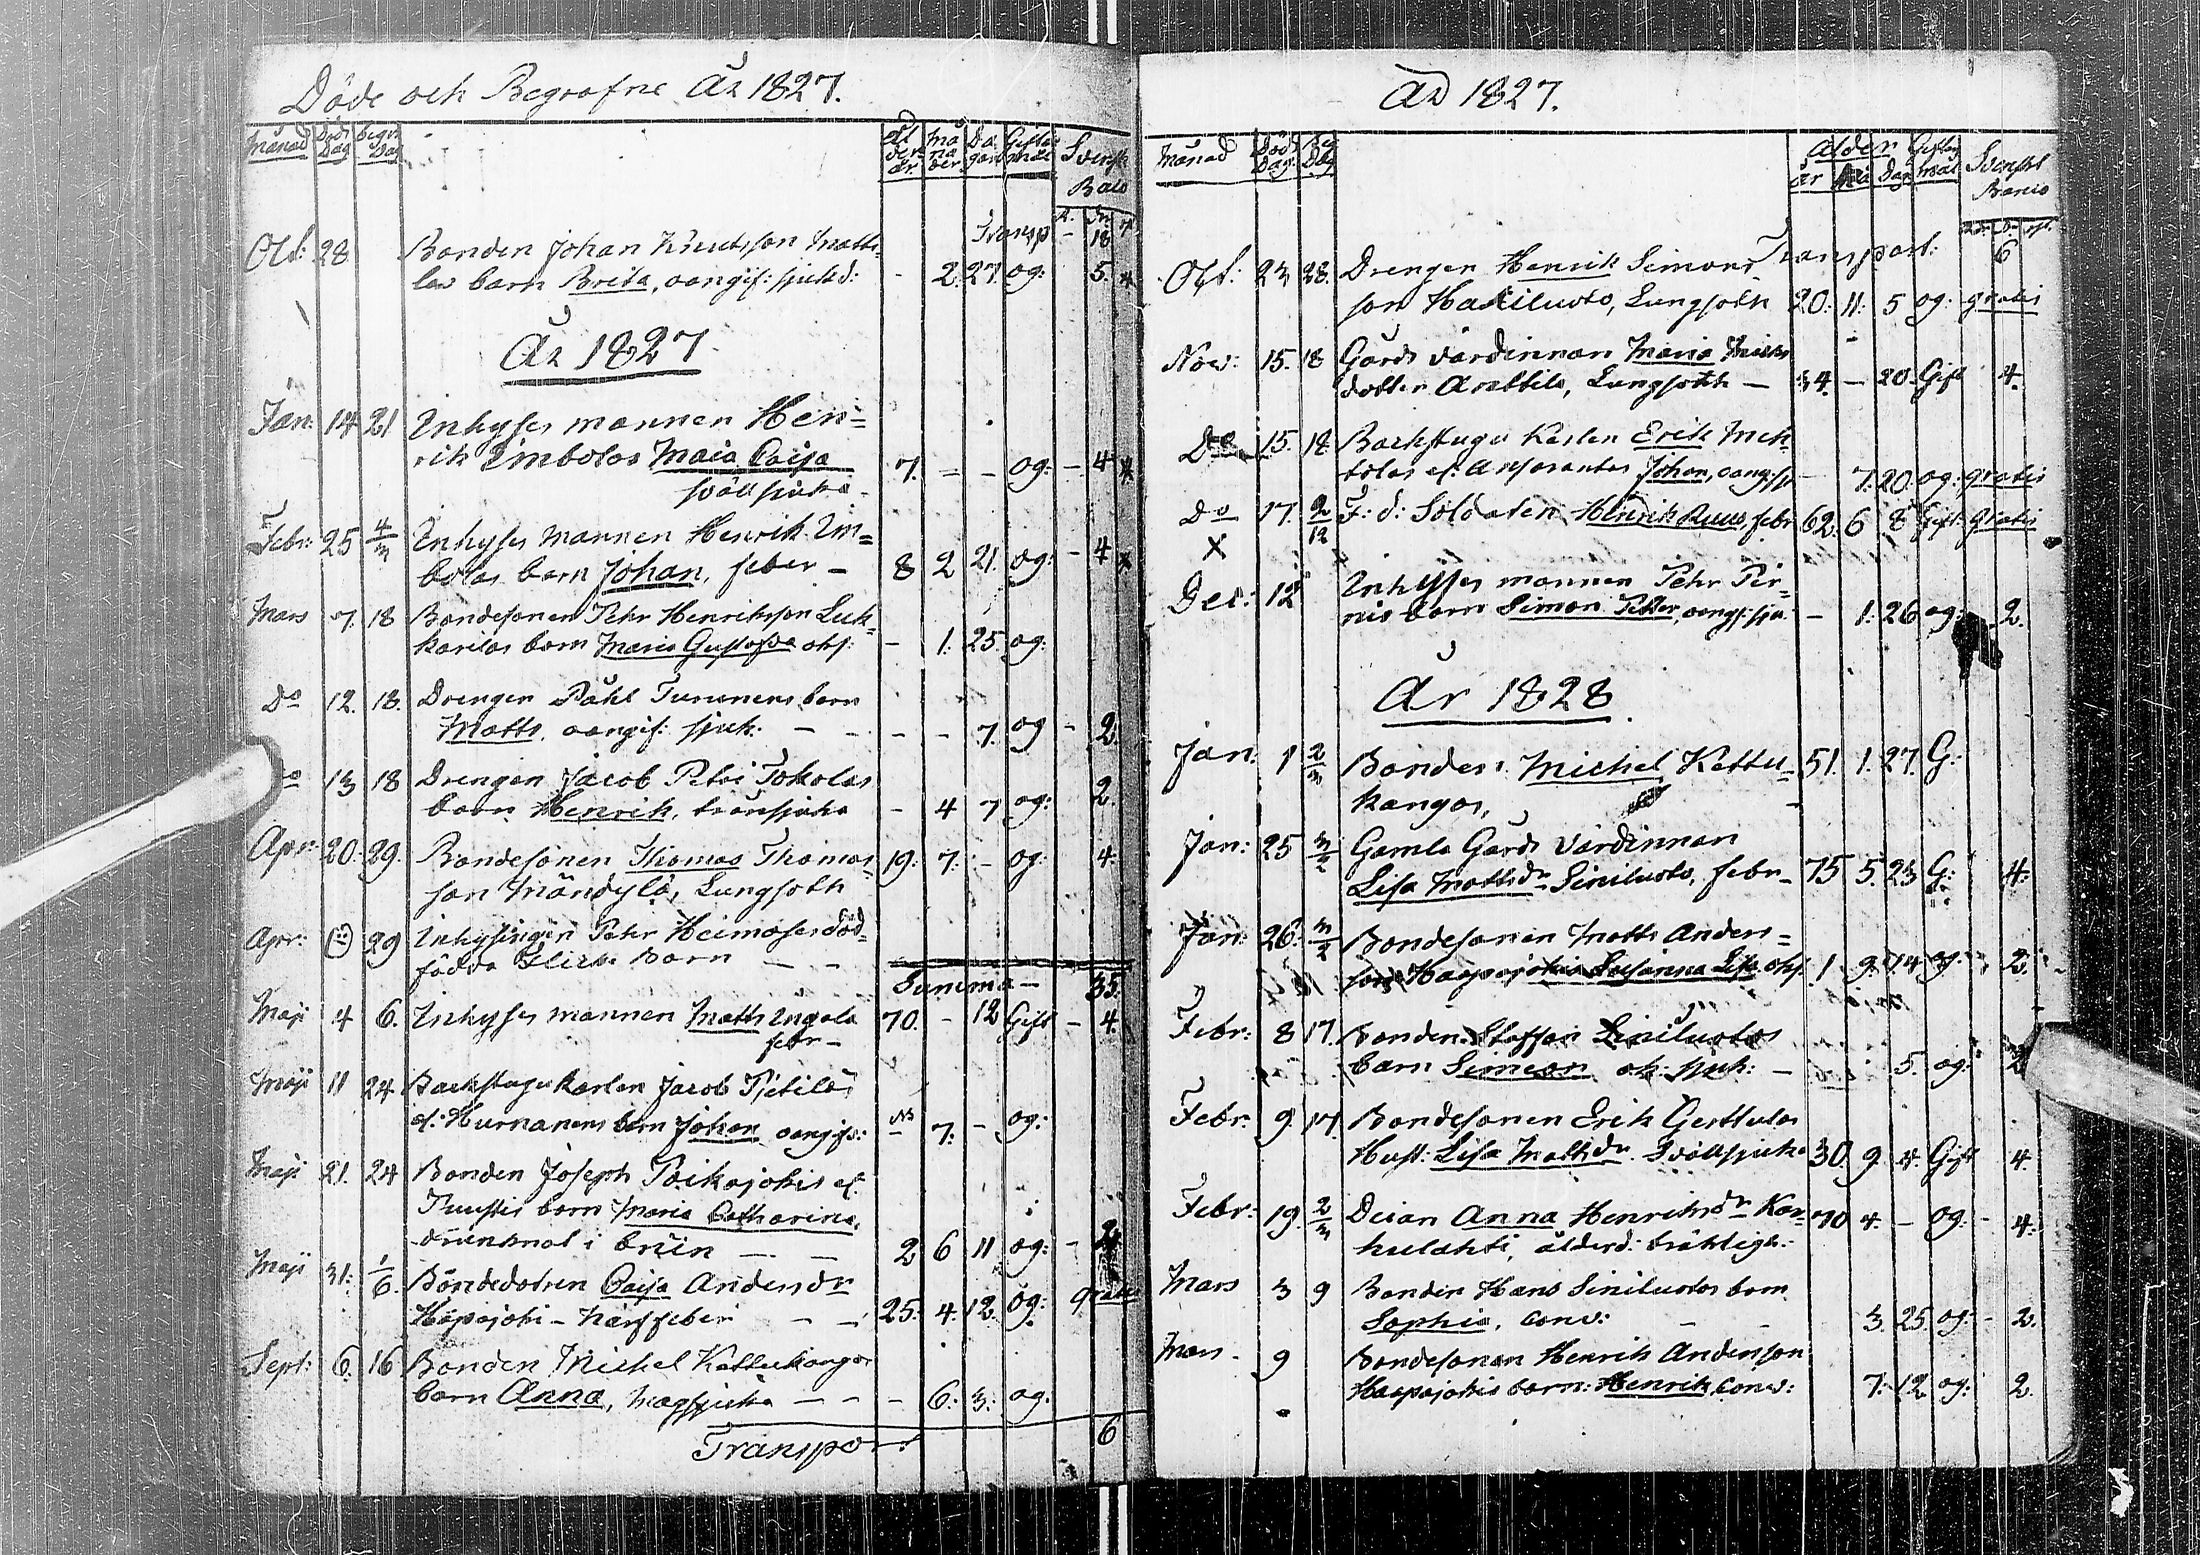 Döde och Begrafne År 1827.
Månad Död Dag begr: Dag Ål der år Må na der Da gar Giftermål Svensk Bco
Transp - 18
Oct: 28 Bonden Johan Knutsson Matti-
las barn Brita, oangif: sjukd: - 2. 27. og: 5.
År 1827
Jan: 14 21 Inhyses mannen Hen=
rik Imbolas Maia Caisa 7. - - og: - 4
svållsjuka
Febr: 25 4/3 Inhyses mannen Henrik Im=
bolas barn Johan, feber - 8 2 21. og: - 4
Mars 7. 18 Bondesonen Pehr Henriksson Luk-
karilas barn Maria Gustafva - 1. 25. og:
Do 12. 18. Drengen Påhl Turunens barn
Matts, oangif: sjuk: - - - - 7. og - 2.
Do 13 18 Drengen Jacob Petri Tokolas
barn Henrik, - 4 7 og: 2.
Apr: 20. 29. Bondesonen Thomas Thomas-
son Mändylä, Lungsoth 19. 7. - og: 4.
Apr: 29 Inhysingen Pehr Heimoses död-
födda Barn - -
Summa - 35.
Maji 4 6. Inhyses mannen Matts Ingala 70. - 12 Gift - 4.
febr -
Maji 11 24. Backstugu karlen Jacob Pietiläs
el: Hurnanens barn Johan oangif: - 7. - og:
Maji 21. 24 Bonden Joseph Poikajokis el:
Tuustis barn Maria Catharina,
drunknat i brun - - 2 6 11 og: - 2.
Maji 31. 1/6. Bondedotren Caisa Anders dr
Hapajoki - feber - - 25. 4. 12. og: gratis
Sept: 6. 16 Bonden Michel Kattukangas
barn Anna, magsjuka - - - 6. 3. og:
Transport 6
År 1827.
Månad Död Dag Beg Dag Ålder år må Dag Giftermål Svenskt Banco
Transport: 6
Oct: 23 28. Drengen Henrik Simons-
son Haliluoto, Lungsoth 20. 11. 5 og: gratis
Nov: 15. 18 Gårds värdinnan Maria Matts
dotter Anttila, Lungsoth - 34. - 20. Gift 4.
Do 15. 18. Backstugu Karlen Erik
Johan, oangif - 7. 20. og: gratis
Do 17. 2/12 F: d: Soldaten Henrik Ruus, febr 62. 6 8 Gift: gratis
X
Dec: 12 Inhyses mannen Pehr Pir-
nis barn Simon Petter, oangif: sju - 1. 26 og: 2.
År 1828.
Jan: 1 2/3 Bonden Michel Kattu- 51. 1. 27. G:
kangas,
Jan: 25 3/2 Gamla Gårds värdinnan
Lisa Matts dr Siniluoto, febr - 75 5. 23 G: 4.
Jan: 26. 3/2 Bondesonen Matts Anders=
sons Haapajokis Susanna Lisa 1 9. 14 og: 2.
Febr: 8 17. Bonden Staffan Siniluotos
barn Simeon ok: sjuk: - 5. og: 2
Febr: 9. 17. Bondesonen Erik Gerttulas
Hust: Lisa Matts dr. Svållsjuka 30. 9. 4. Gift 4.
Febr: 19. 2/3 Anna Henriks dr Kar-
hulahti, ålderd: bräkligh: 70 4. - og: - 4.
Mars 3 9 Bonden Hans Siniluotos barn
Sophia, conv: - - 3. 25. og: - 2.
Mars - 9 Bondesonen Henrik Andersson
Haapajokis barn: Henrik, conv: 7. 12 og: 2.